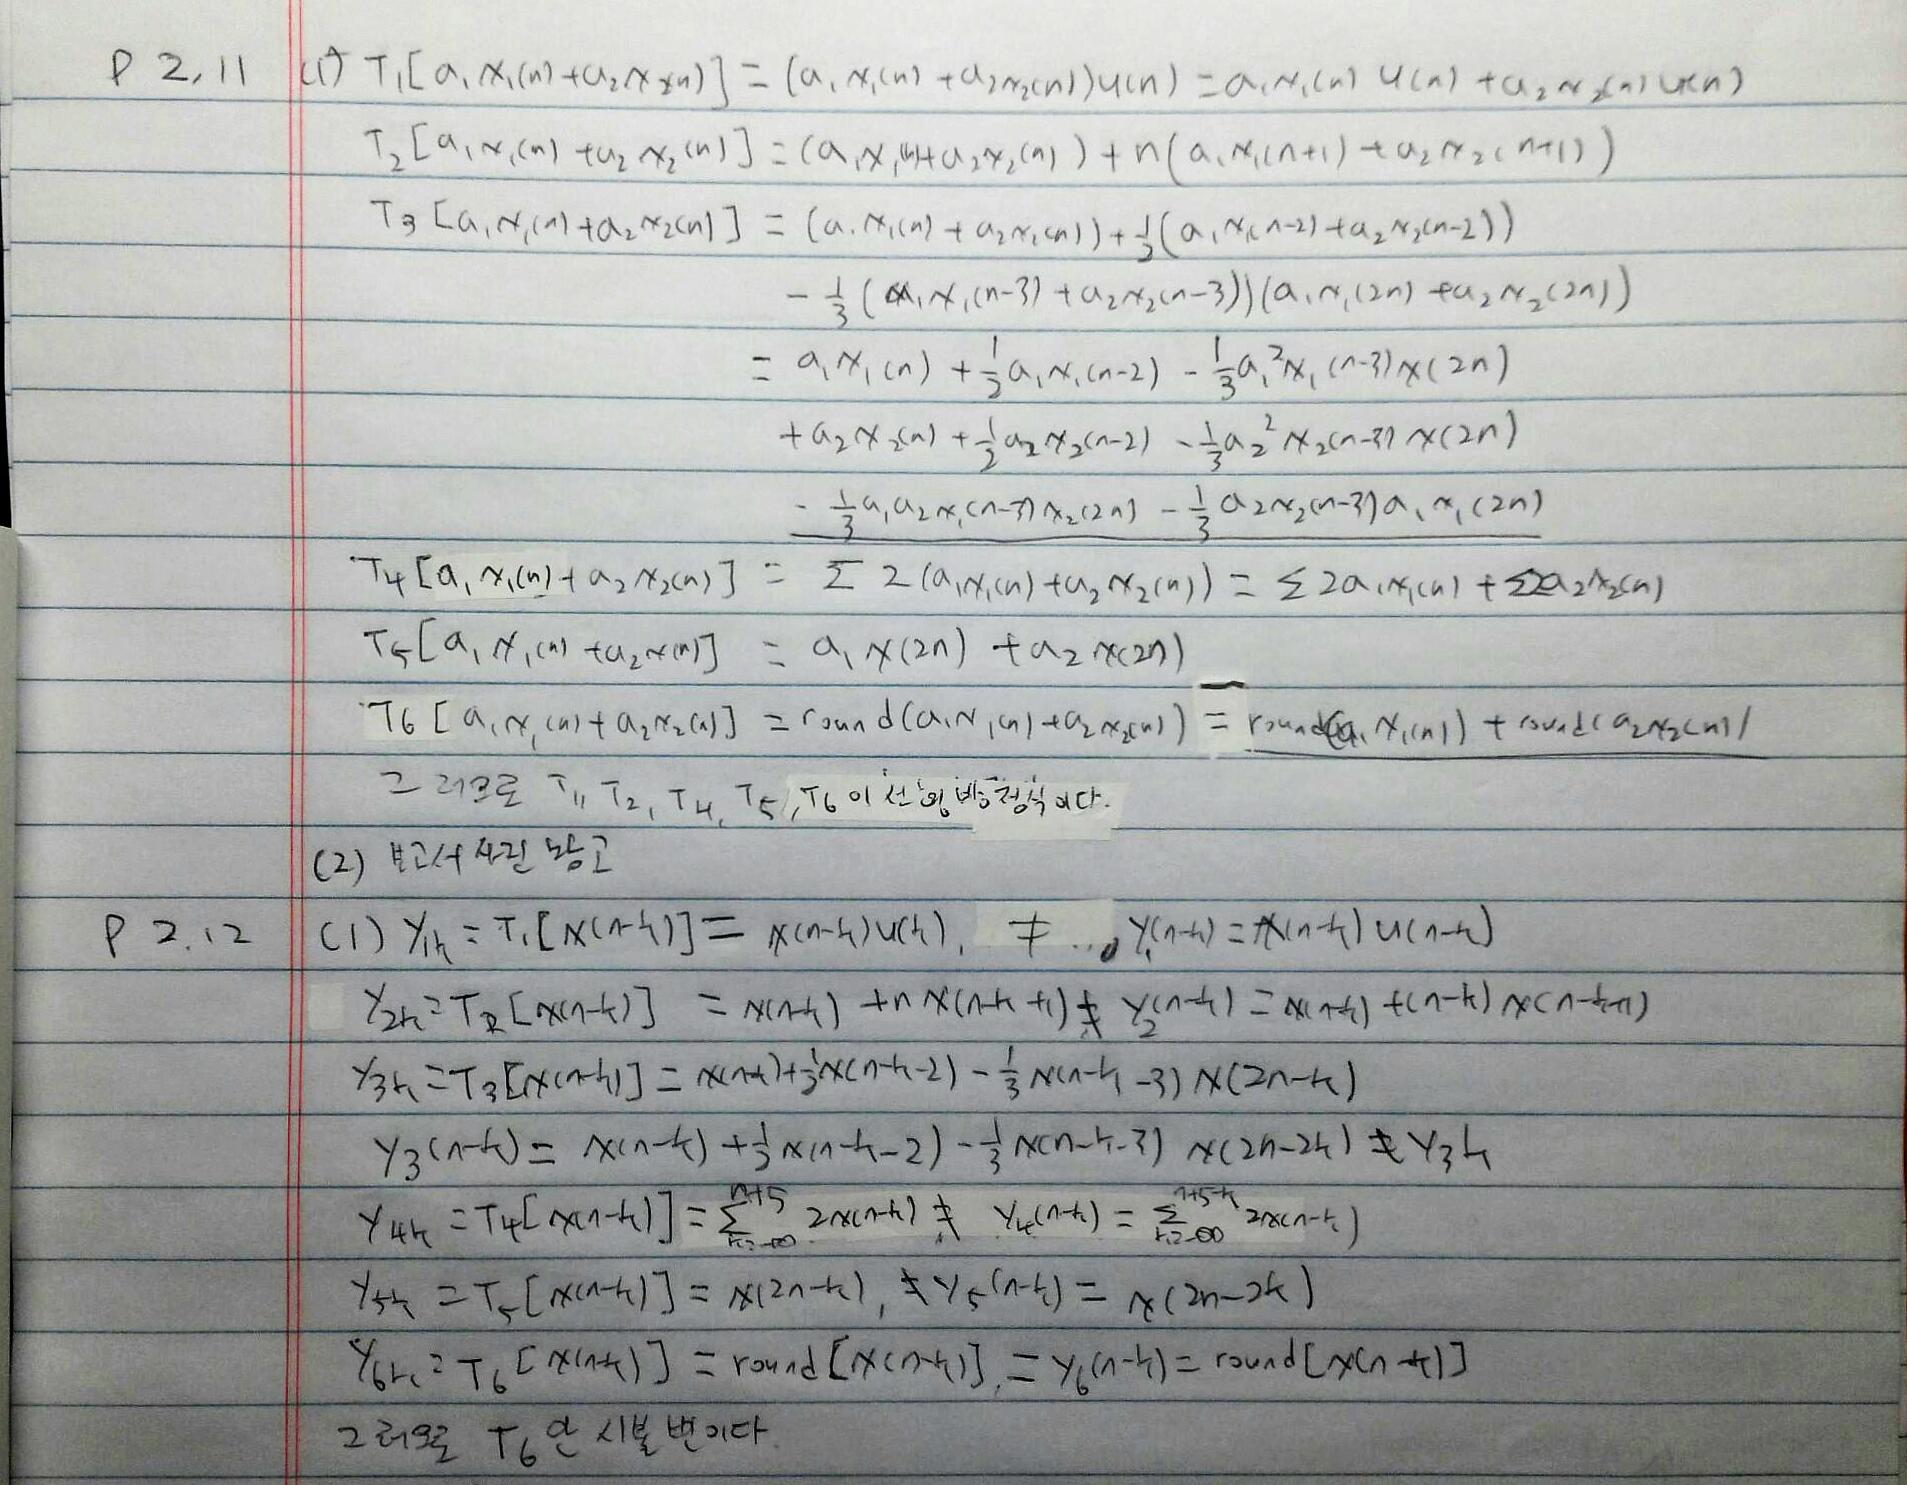 P 2.11 (1) T₁[a₁x₁(n)+a₂x₂(n)] = (a₁x₁(n)+a₂x₂(n))u(n) = a₁x₁(n)u(n)+a₂x₂(n)u(n)
T₂[a₁x₁(n)+a₂x₂(n)] = (a₁x₁(n)+a₂x₂(n))+n(a₁x₁(n+1)+a₂x₂(n+1))
T₃[a₁x₁(n)+a₂x₂(n)] = (a₁x₁(n)+a₂x₂(n))+½(a₁x₁(n-2)+a₂x₂(n-2))
-⅓(a₁x₁(n-3)+a₂x₂(n-3))(a₁x₁(2n)+a₂x₂(2n))
= a₁x₁(n)+½a₁x₁(n-2)-⅓a₁²x₁(n-3)x(2n)
+a₂x₂(n)+½a₂x₂(n-2)-⅓a₂²x₂(n-3)x(2n)
-⅓a₁a₂x₁(n-3)x₂(2n)-⅓a₂x₂(n-3)a₁x₁(2n)
T₄[a₁x₁(n)+a₂x₂(n)] = Σ2(a₁x₁(n)+a₂x₂(n)) = Σ2a₁x₁(n)+Σ2a₂x₂(n)
T₅[a₁x₁(n)+a₂x(n)] = a₁x(2n)+a₂x(2n)
T₆[a₁x₁(n)+a₂x₂(n)] = round(a₁x₁(n)+a₂x₂(n)) = round(a₁x₁(n))+round(a₂x₂(n))
그러므로 T₁, T₂, T₄, T₅, T₆이 선형 방정식이다.
(2) 보고서 사진 참고
P 2.12 (1) y₁ₖ = T₁[x(n-k)] = x(n-k)u(k), ≠ y₁(n-k) = x(n-k)u(n-k)
y₂ₖ = T₂[x(n-k)] = x(n-k)+nx(n-k+1) ≠ y₂(n-k) = x(n-k)+(n-k)x(n-k+1)
y₃ₖ = T₃[x(n-k)] = x(n-k)+½x(n-k-2)-⅓x(n-k-3)x(2n-k)
y₃(n-k) = x(n-k)+½x(n-k-2)-⅓x(n-k-3)x(2n-2k) ≠ y₃ₖ
y₄ₖ = T₄[x(n-k)] = Σ_{k=-∞}^{n+5} 2x(n-k) ≠ y₄(n-k) = Σ_{k=-∞}^{n+5-k} 2x(n-k)
y₅ₖ = T₅[x(n-k)] = x(2n-k), ≠ y₅(n-k) = x(2n-2k)
y₆ₖ = T₆[x(n-k)] = round[x(n-k)], = y₆(n-k) = round[x(n-k)]
그러므로 T₆만 시불변이다